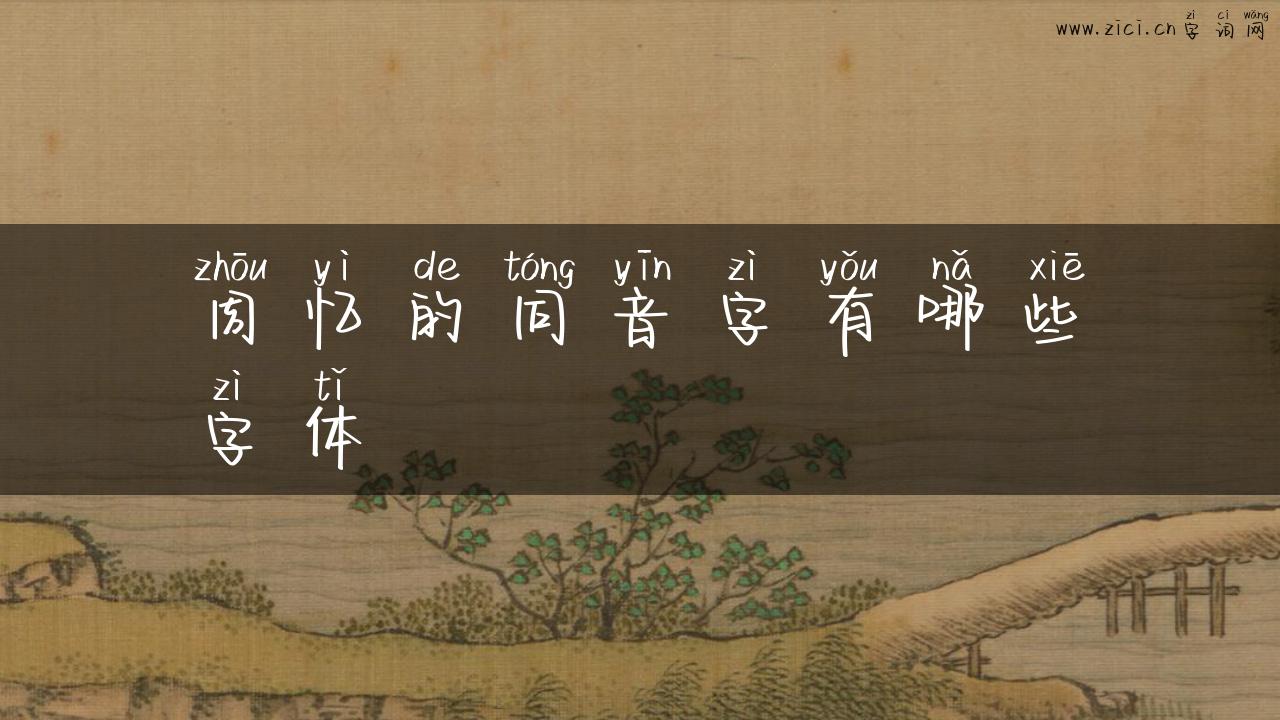 zì cí wǎng
www.zici.cn 字词网
zhōu yì de tóng yīn zì yǒu nǎ xiē
周忆的同音字有哪些
zì tǐ
字体